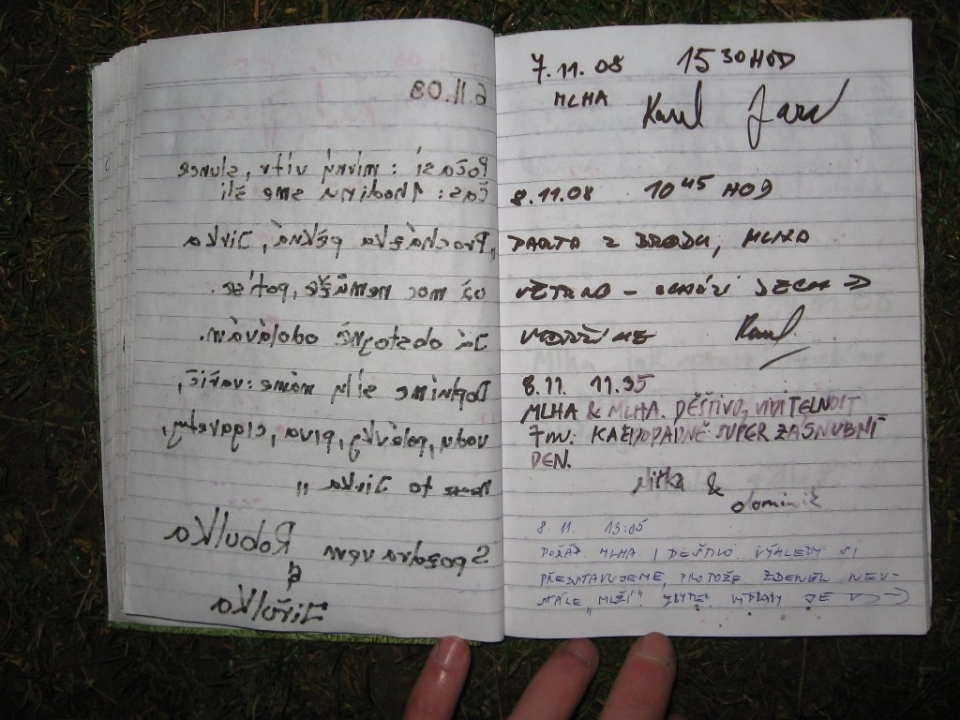 6.11.08
Počasí : mírný vítr, slunce
čas: 1 hodina sme šli
„Procházka pěkná, Jirka
už moc nemůže, potí se.
Já obstojně odolávám.
Doplníme síly máme: vařič,
vodu, polévky, piva, cigarety,
to Jirka "
S pozdravem Robulka
&
Jiřulka
7.11.08 15 30 HOD
MLHA Karel
8.11.08 10 45 HOD
PARTA Z BRODU, MLHA
VĚTRNO –
Karel
8.11. 11.35
MLHA & MLHA. DĚŠTIVO, VIDITELNOST
7m. KAŽDOPÁDNĚ SUPER ZÁSNUBNÍ
DEN.
& dominik
8.11. 13:05
POŘÁD MLHA I DEŠTIVO, VÝHLEDY SI
PŘEDSTAVUJEME, PROTOŽE ZDENĚK NEU-
STÁLE „MLŽÍ". JE